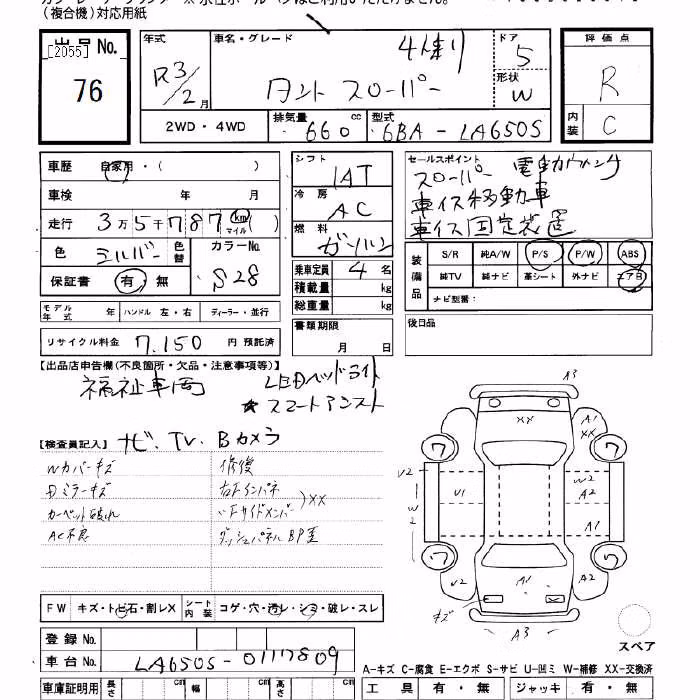 (複合機)対応用紙
出品No.
[2055]
76
年式
R3/2月
車名・グレード
4人乗り
タント スローパー
ドア
5
形状
W
評価点
R
内装
C
2WD・4WD
排気量 660 cc
型式 6BA - LA650S
車歴 自家用・( )
車検 年 月
走行 3万5千787 km マイル ( )
色 シルバー 色替
カラーNo. S28
保証書 有・無
シフト IAT
冷房 AC
燃料 ガソリン
乗車定員 4名
積載量 kg
総重量 kg
セールスポイント 電動ウィンチ
スローパー
車イス移動車
車イス固定装置
装備品
S/R 純A/W P/S P/W ABS
純TV 純ナビ 革シート 外ナビ エアB
ナビ型番:
モデル年式 年 ハンドル 左・右 ディーラー・並行
リサイクル料金 7,150 円 預託済
書類期限
月 日
後日品
【出品店申告欄(不良箇所・欠品・注意事項等)】
福祉車両
LEDヘッドライト
★スマートアシスト
【検査員記入】 ナビ、TV、Bカメラ
Wカバーキズ 修復
Dミラーキズ 右Fインパネ
カーペット破れ 〃FサイドメンバーXX
AC不良 ダッシュパネルBP歪
A3
XX
A1
XX
ワ
ワ
V2
W2
U1
W2
A2
A1
ワ
ワ
V2
A1
A2
キズ
A3
スペア
FW キズ・トビ石・割レX
シート内装 コゲ・穴・汚レ・シミ・破レ・スレ
登録No.
車台No. LA650S-0117809
A-キズ C-腐食 E-エクボ S-サビ U-凹ミ W-補修 XX-交換済
車庫証明用 長さ cm 幅 cm 高さ cm
工具 有・無 ジャッキ 有・無